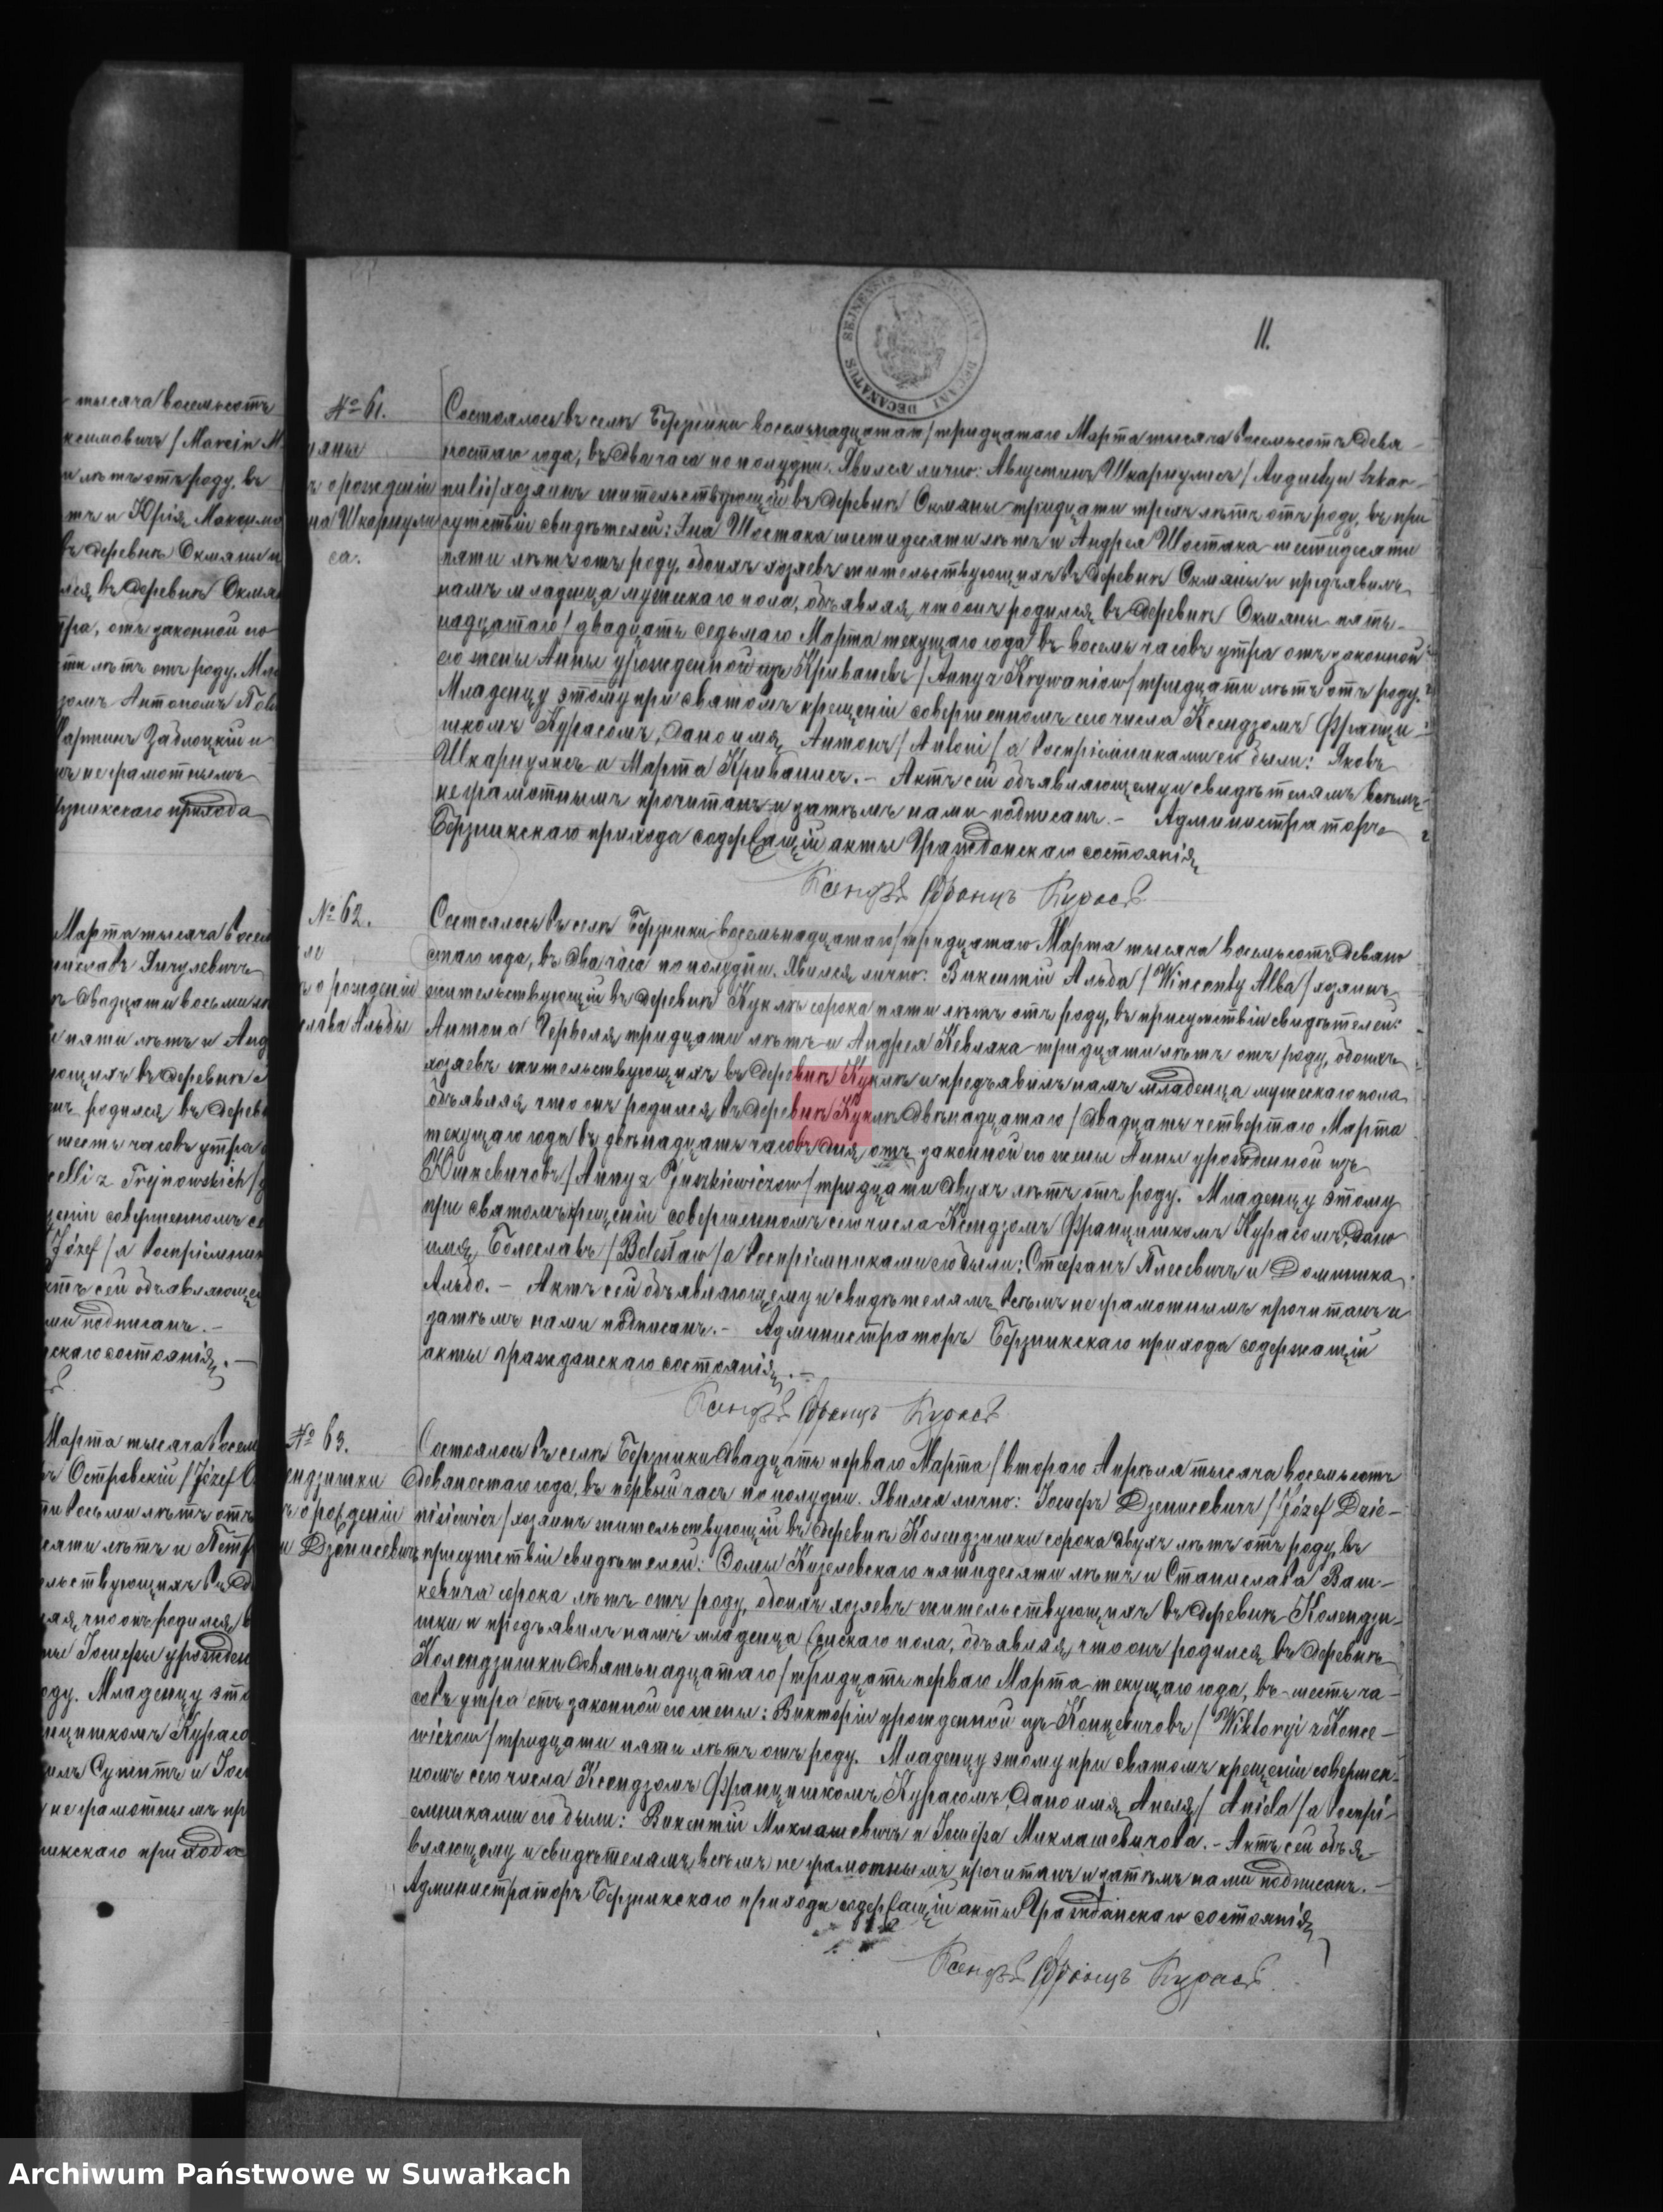 - тысяча восемьсотъ
ксимовичъ / Marcin M
и лѣтъ отъ роду, въ
тъ и Юрія Максимо
въ деревнѣ Окмяны и
лся въ деревнѣ Окмя
тра, отъ законной его
ти лѣтъ отъ роду. Мла
зомъ Антономъ
Мартинъ Заблоцкій и
мъ неграмотнымъ
Бержникскаго прихода
Марта тысяча восем
ниславъ Янчулевичъ
въ двадцати восьми лѣ
и пяти лѣтъ и Анд
ющихъ въ деревнѣ
онъ родился въ дерев
шесть часовъ утра
celli z Trejnowskich /
щеніи совершенномъ се
Józef / а воспріемник
Актъ сей объявляюще
ми подписанъ. -
нскаго состоянія. -
Марта тысяча восем
въ Островскій / Józef O
ти восьми лѣтъ отъ
сяти лѣтъ и Петр
льствующихъ въ де
ляя, что онъ родился в
ны Іосифы урожден
оду. Младенцу это
нцишкомъ Курасо
илъ Супинтъ и Іос
и неграмотнымъ пр
никскаго прихода
DECANATUS SEJNENSIS DECANI
11.
№ 61.
мяны
ъ о рожденіи
на Шкарнули
са.
Состоялось въ селѣ Бержники восемьнадцатаго / тридцатаго Марта тысяча восемьсотъ девя-
ностаго года, въ два часа по полудни. Явился лично: Августинъ Шкарнулисъ / Augustyn Szkar-
nulis / хозяинъ жительствующій въ деревнѣ Окмяны тридцати трехъ лѣтъ отъ роду, въ при
сутствіи свидѣтелей: Яна Шостака шестидесяти лѣтъ и Андрея Шостака шестидесяти
пяти лѣтъ отъ роду, обоихъ хозяевъ жительствующихъ въ деревнѣ Окмяны и предъявилъ
намъ младенца мужескаго пола, объявляя, что онъ родился въ деревнѣ Окмяны пять-
надцатаго / двадцать седьмаго Марта текущаго года въ восемь часовъ утра отъ законной
его жены Анны урожденной изъ Криваневъ / Anny z Krywaniow / тридцати лѣтъ отъ роду.
Младенцу этому при святомъ крещеніи совершенномъ сего числа Ксендзомъ Францы-
шкомъ Курасомъ, дано имя Антонъ / Antoni / а воспріемниками его были: Яковъ
Шкарнулисъ и Марта Криванисъ. - Актъ сей объявляющему и свидѣтелямъ всѣмъ
неграмотнымъ прочитанъ и затѣмъ нами подписанъ. - Администраторъ
Бержникскаго прихода содержащій акты Гражданскаго состоянія
Ксендзъ Францъ Курасъ
№ 62.
ли
ъ о рожденіи
слава Альбы
Состоялось въ селѣ Бержники восемьнадцатаго / тридцатаго Марта тысяча восемьсотъ девяно
стаго года, въ два часа по полудни. Явился лично: Викентій Альба / Wincenty Alba / хозяинъ
жительствующій въ деревнѣ Куклѣ сорока пяти лѣтъ отъ роду, въ присутствіи свидѣтелей:
Антона Червеля тридцати лѣтъ и Андрея Кевляка тридцати лѣтъ отъ роду, обоихъ
хозяевъ жительствующихъ въ деревнѣ Куклѣ и предъявилъ намъ младенца мужескаго пола
объявляя что онъ родился въ деревнѣ Куклѣ двѣнадцатаго / двадцать четвертаго Марта
текущаго года въ двѣнадцать часовъ дня, отъ законной его жены Анны урожденной изъ
Юшкевичовъ / Anny z Juszkiewiczow / тридцати двухъ лѣтъ отъ роду. Младенцу этому
при святомъ крещеніи совершенномъ сего числа Ксендзомъ Францишкомъ Курасомъ, дано
имя, Болеславъ / Bolesław / а воспріемниками его были: Стефанъ Плесевичъ и Доминика
Альбо. - Актъ сей объявляющему и свидѣтелямъ всѣмъ неграмотнымъ прочитанъ и
затѣмъ нами подписанъ. - Администраторъ Бержникскаго прихода содержащій
акты гражданскаго состоянія. -
Ксендзъ Францъ Курасъ
№ 63.
ендзишки
ъ о рожденіи
и Дзенисевичъ
Состоялось въ селѣ Бержники двадцать перваго Марта / втораго Апрѣля тысяча восемьсотъ
девяностаго года, въ первый часъ по полудни. Явился лично: Іосифъ Дзенисевичъ / Józef Dzie-
nisiewicz / хозяинъ жительствующій въ деревнѣ Колендзишки сорока двухъ лѣтъ отъ роду, въ
присутствіи свидѣтелей: Ѳомы Козловскаго пятидесяти лѣтъ и Станислава Ваш-
кевича сорока лѣтъ отъ роду, обоихъ хозяевъ жительствующихъ въ деревнѣ Колендзи-
шки и предъявилъ намъ младенца женскаго пола, объявляя, что онъ родился въ деревнѣ
Колендзишки девятьнадцатаго / тридцать перваго Марта текущаго года, въ шесть ча-
совъ утра отъ законной его жены: Викторіи урожденной изъ Концевичовъ / Wiktoryi z Konce-
wiczow / тридцати пяти лѣтъ отъ роду. Младенцу этому при святомъ крещеніи совершен-
номъ сего числа Ксендзомъ Францишкомъ Курасомъ, дано имя Анеля / Aniela / а воспрі-
емниками его были: Викентій Миклашевичъ и Іосифа Миклашевичова. - Актъ сей объя-
вляющему и свидѣтелямъ всѣмъ неграмотнымъ прочитанъ и затѣмъ нами подписанъ. -
Администраторъ Бержникскаго прихода содержащій акты Гражданскаго состоянія
Ксендзъ Францъ Курасъ.
Archiwum Państwowe w Suwałkach